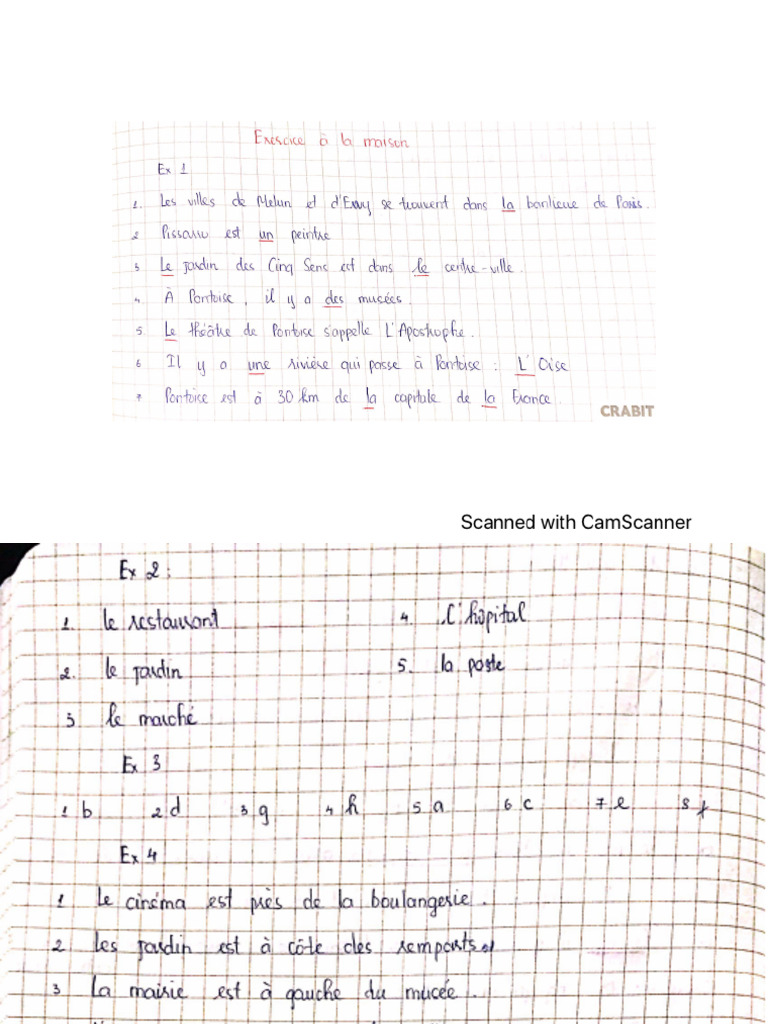 Exercice à la maison
Ex 1
1. Les villes de Melun et d'Evry se trouvent dans la banlieue de Paris.
2 Pissarro est un peintre
3 Le jardin des Cinq Sens est dans le centre-ville.
4 À Pontoise, il y a des musées.
5 Le théâtre de Pontoise s'appelle L'Apostrophe.
6 Il y a une rivière qui passe à Pontoise : L'Oise
7 Pontoise est à 30 km de la capitale de la France.
CRABIT
Scanned with CamScanner
Ex 2:
1. le restaurant 4 L'hôpital
2. le jardin 5. la poste
3 le marché
Ex 3
1 b 2 d 3 g 4 h 5 a 6 c 7 e 8 f
Ex 4
1 Le cinéma est près de la boulangerie.
2 Les jardin est à côte des remparts.
3 La mairie est à gauche du mucée.